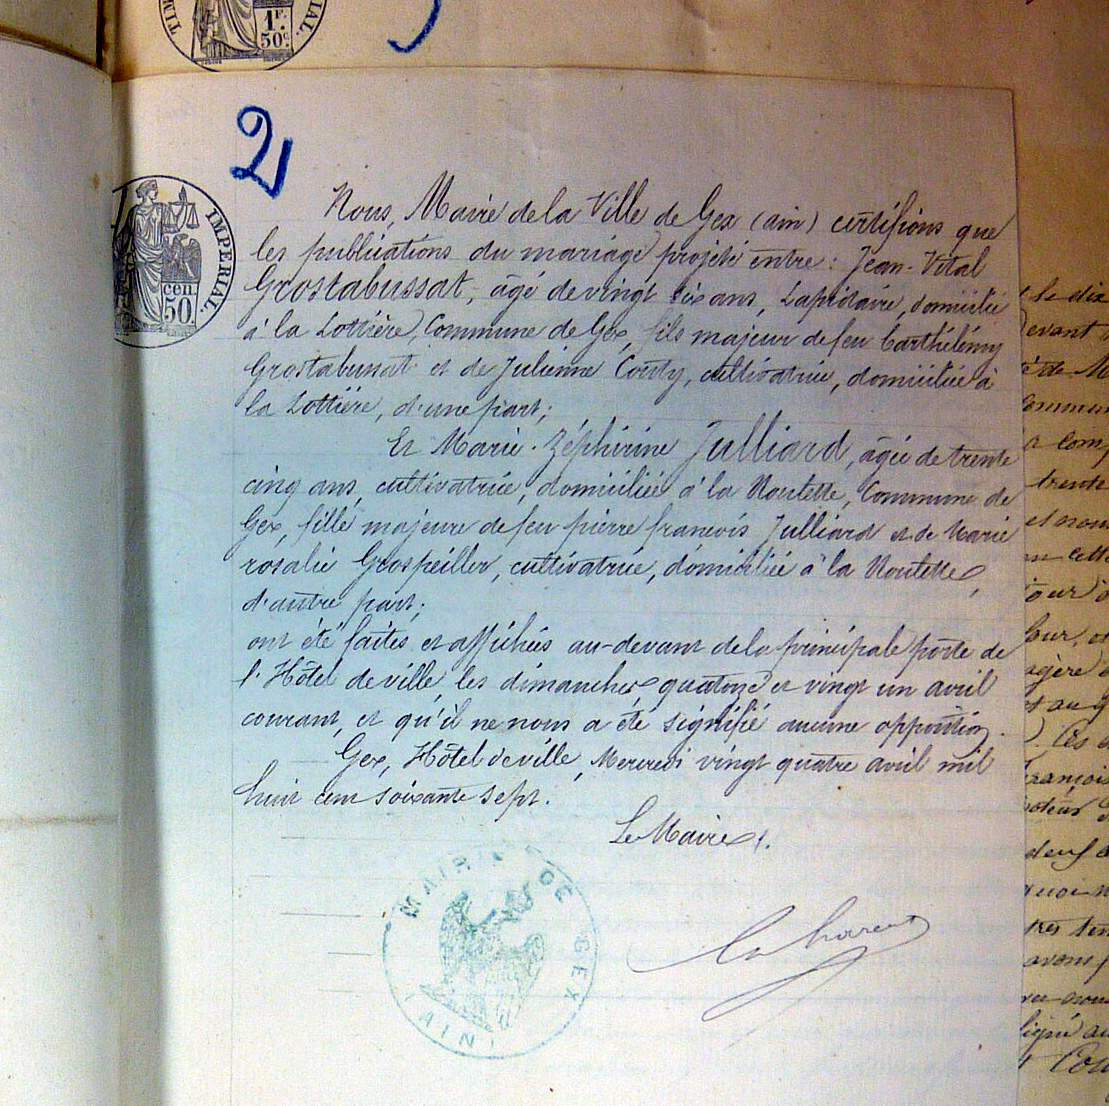 1F.
50c
2
IMPERIAL.
cen.
50
Nous, Maire de la Ville de Gex (ain) certifions que
les publications du mariage projeté entre : Jean-Vital
Grostabussat, âgé de vingt six ans, Lapidaire, domicilié
à la Lottière, Commune de Gex, fils majeur de feu Barthélémy
Grostabussat et de Julienne Couty, cultivatrice, domiciliée à
la Lottière, d'une part;
Et Marie-Zéphirine Julliard, âgée de trente
cinq ans, cultivatrice, domiciliée à la Noutette, Commune de
Gex, fille majeure de feu pierre francois Julliard et de Marie
rosalie Grospeiller, cultivatrice, domiciliée à la Noutette,
d'autre part;
ont été faites et affichées au-devant de la principale porte de
l'Hôtel de ville, les dimanches quatorze et vingt un avril
courant, et qu'il ne nous a été signifié aucune opposition.
Gex, Hôtel de ville, Mercredi vingt quatre avril mil
huit cent soixante sept.
Le Maire
MAIRIE DE GEX
(AIN)